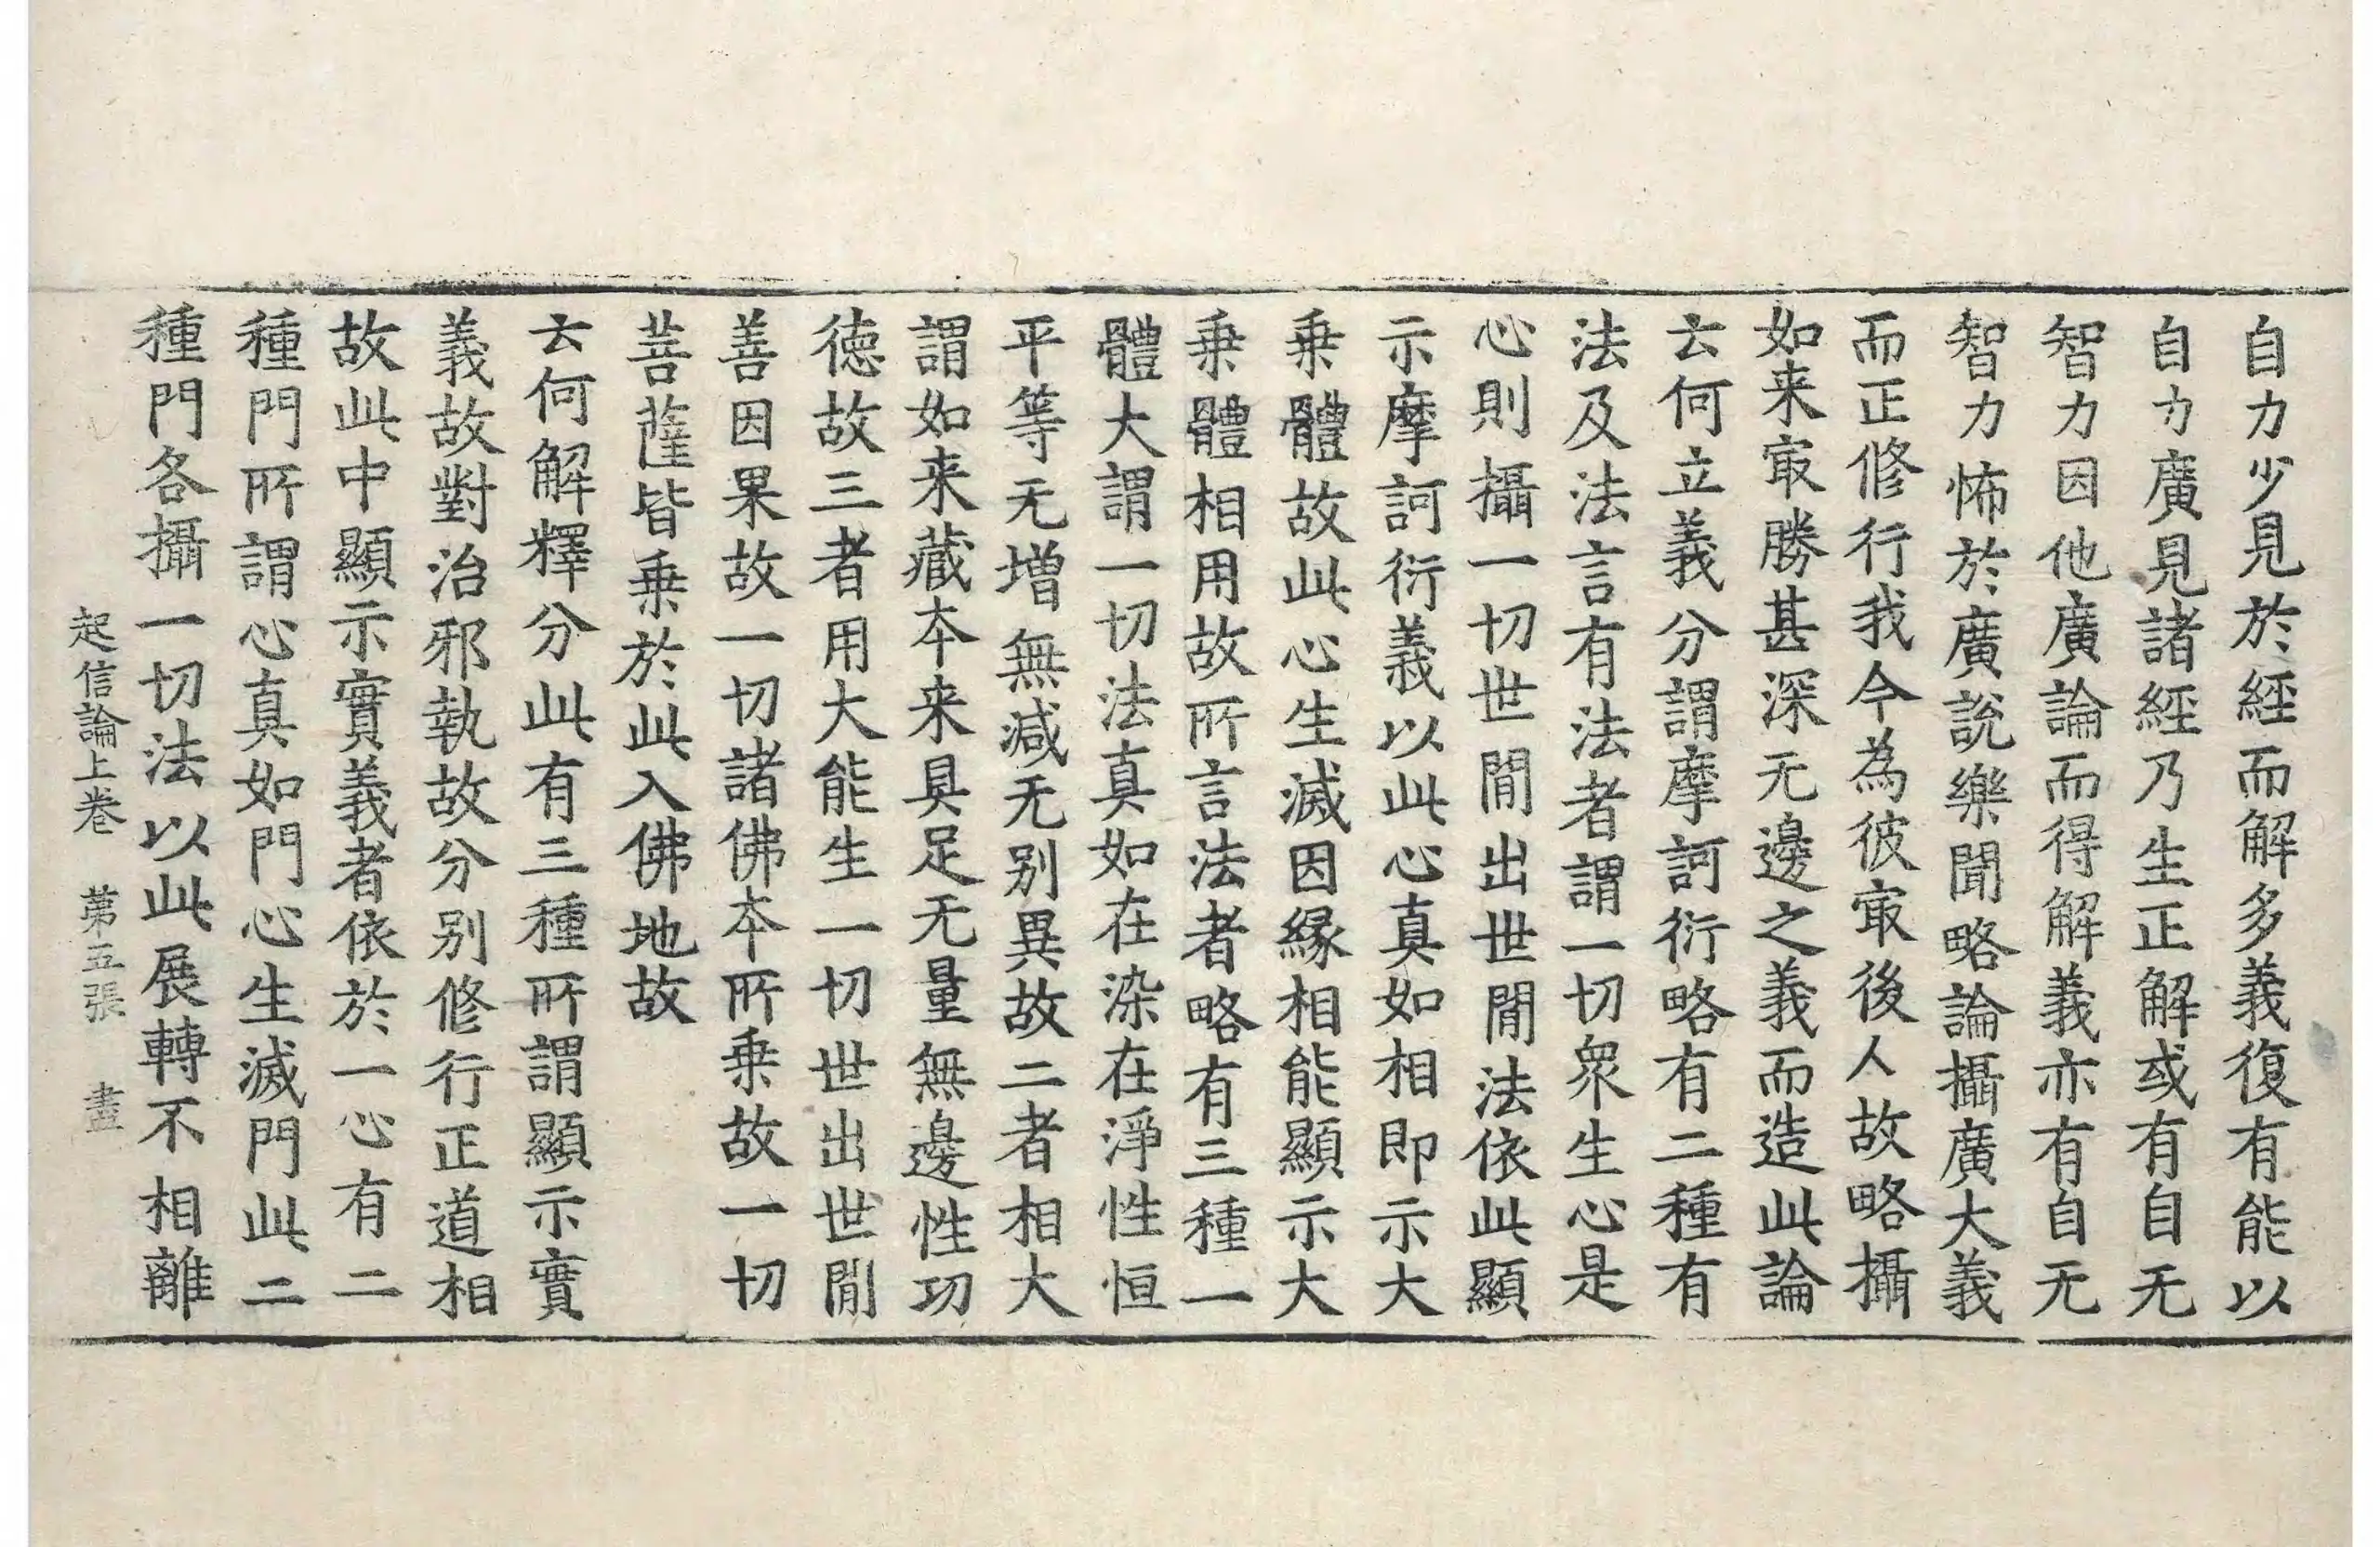 自力少見於經而解多義復有能以
自力廣見諸經乃生正解或有自无
智力因他廣論而得解義亦有自无
智力怖於廣說樂聞略論攝廣大義
而正修行我今為彼㝡後人故略攝
如来㝡勝甚深无邊之義而造此論
云何立義分謂摩訶衍略有二種有
法及法言有法者謂一切衆生心是
心則攝一切世閒出世閒法依此顯
示摩訶衍義以此心真如相即示大
乗體故此心生滅因緣相能顯示大
乗體相用故所言法者略有三種一
體大謂一切法真如在染在淨性恒
平等无增無減无别異故二者相大
謂如来藏本来具足无量無邊性功
德故三者用大能生一切世出世閒
善因果故一切諸佛本所乗故一切
菩薩皆乗於此入佛地故
云何解釋分此有三種所謂顯示實
義故對治邪執故分别修行正道相
故此中顯示實義者依於一心有二
種門所謂心真如門心生滅門此二
種門各攝一切法以此展轉不相離
起信論上卷　第五張　盡